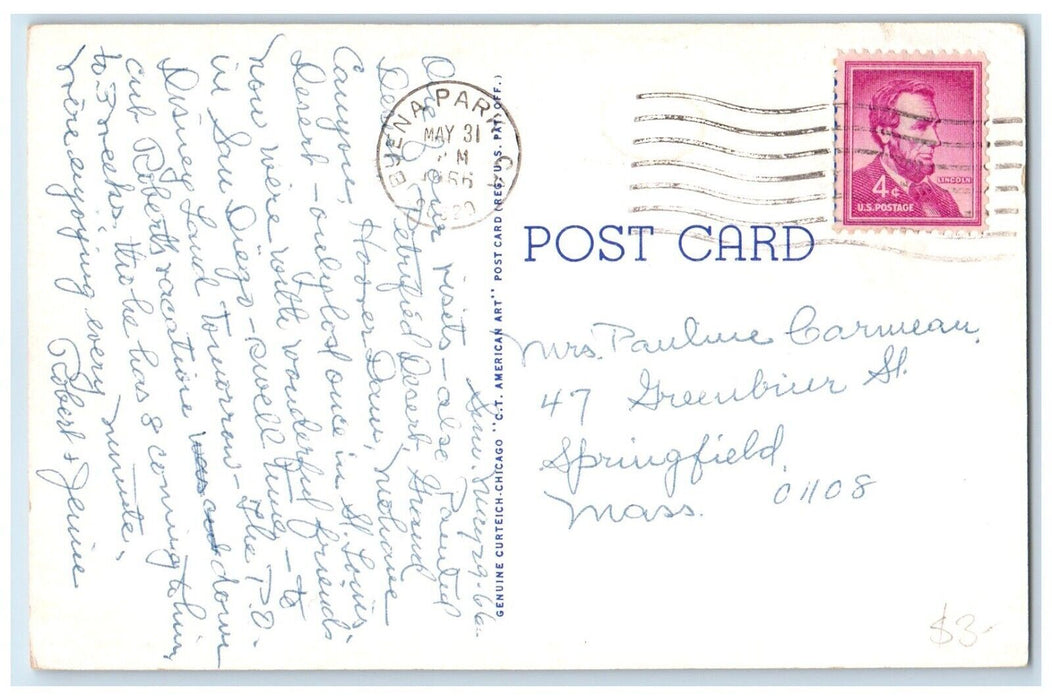 Sun. May 29-66-
One of our visits - also Painted
Desert, Petrified Desert Grand
Canyon, Hoover Dam, Mohave
Desert - only flod once in St. Louis.
now were with wonderful friends
in San Diego - swell time - to
Disney Land Tomorrow - The P.O.
cut Robert's vacation down
to 3 weeks, tho he has 8 coming to him,
We're enjoying every minute.
Robert & Jenine
BUENA PARK
MAY 31
PM
1966
GENUINE CURTEICH-CHICAGO "C.T. AMERICAN ART" POST CARD (REG. U.S. PAT. OFF.)
LINCOLN
4¢
U.S. POSTAGE
POST CARD
Mrs. Pauline Carmean,
47 Greenbrier St.
Springfield,
Mass. 01108
$3-